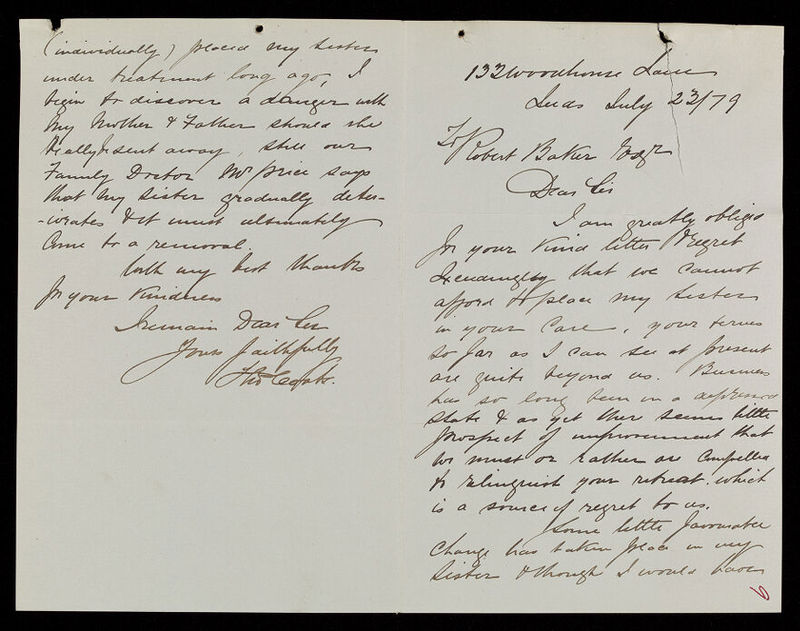 132 Woodhouse Lane
Leeds July 23/79
To Robert Baker Esqr
Dear Sir
I am greatly obliged
for your kind letter & regret
exceedingly that we cannot
afford to place my sister
in your care, your terms
so far as I can see at present
are quite beyond us. Business
has so long been in a depressed
state & as yet there seems little
prospect of improvement that
we must or rather are compelled
to relinquish your retreat. which
is a source of regret to us.
Some little favourable
change has taken place in my
sister & though I would have
6
(individually) placed my sister
under treatment long ago, I
begin to discover a danger with
my Mother & Father should she
really be sent away, still our
Family Doctor Mr Price says
that my sister gradually deter-
-iorates & it must ultimately
come to a removal.
With my best thanks
for your kindness
I remain Dear Sir
Yours faithfully
Thos